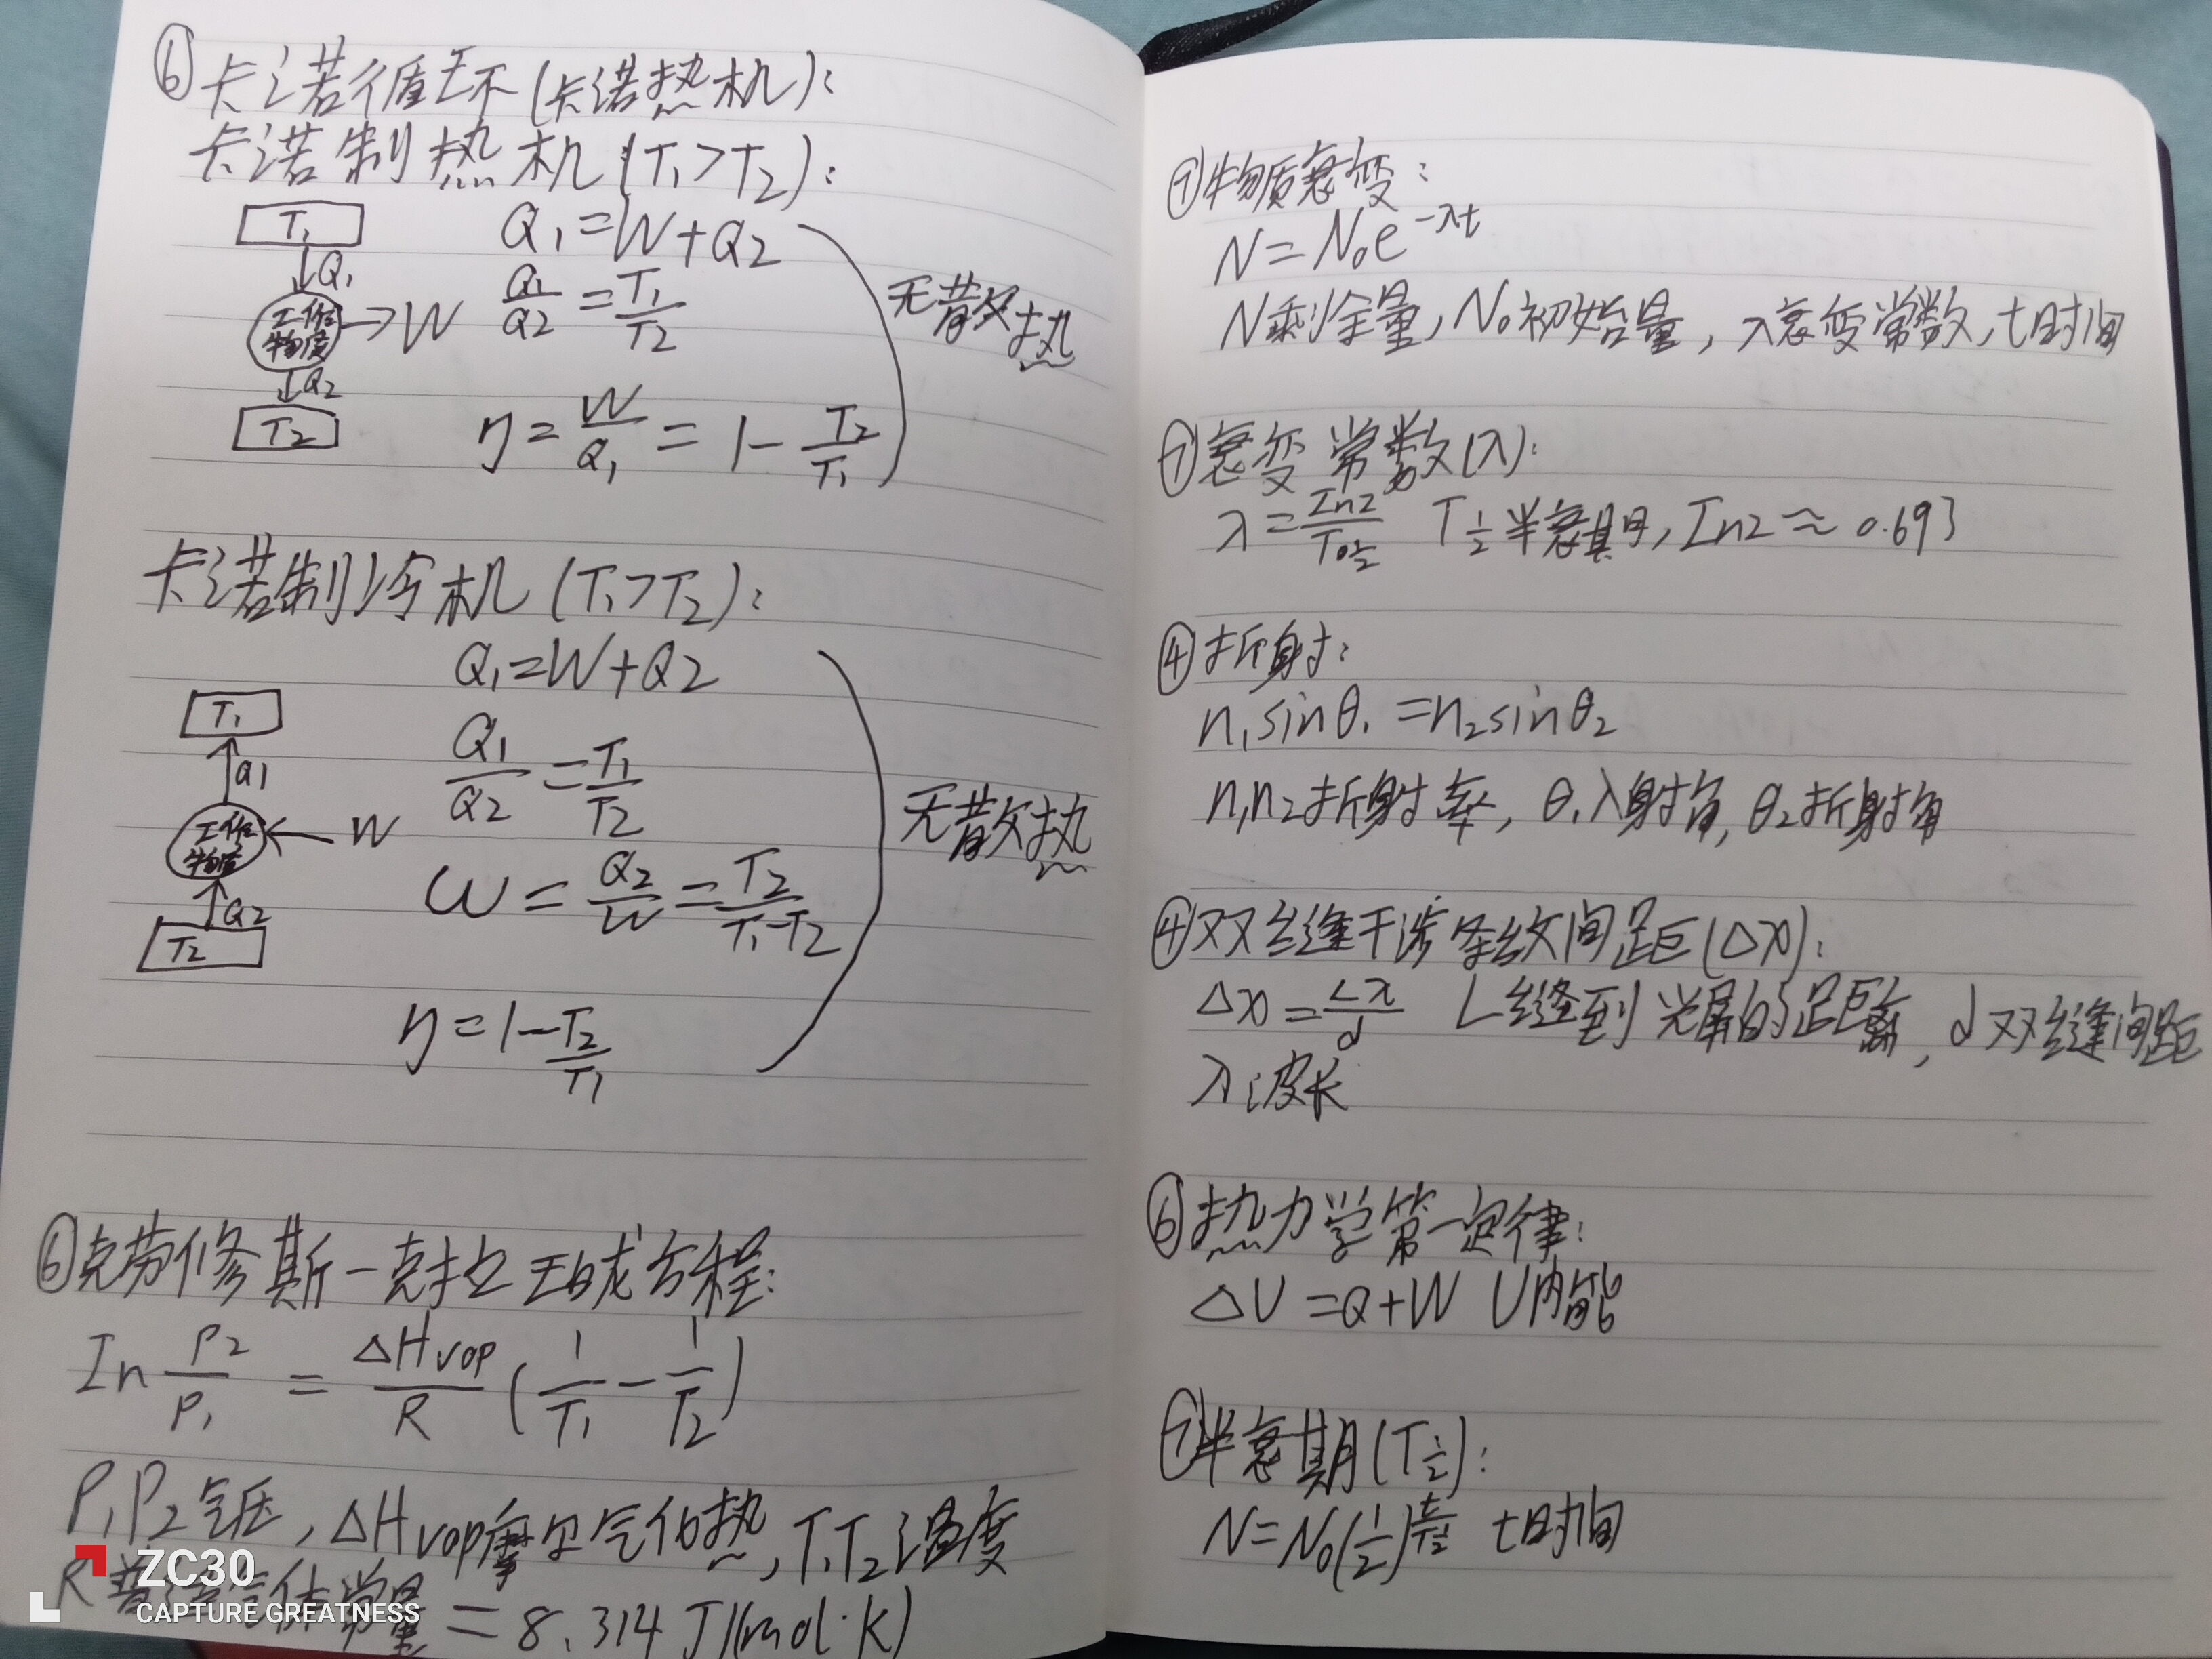 ⑥卡诺循环(卡诺热机):
卡诺制热机(T₁>T₂):
T₁
↓Q₁
工作
物质
→W
↓Q₂
T₂
Q₁=W+Q₂
Q₁/Q₂=T₁/T₂
η=W/Q₁=1-T₂/T₁
无散热
卡诺制冷机(T₁>T₂):
Q₁=W+Q₂
T₁
↑Q₁
工作
物质
←W
↑Q₂
T₂
Q₁/Q₂=T₁/T₂
ω=Q₂/W=T₂/T₁-T₂
η=1-T₂/T₁
无散热
⑥克劳修斯-克拉珀方程:
In P₂/P₁=ΔHvap/R(1/T₁-1/T₂)
P₁P₂气压,ΔHvap摩尔气化热,T₁T₂温度
R普适气体常量=8.314J/(mol·K)
ZC30
CAPTURE GREATNESS
⑦物质衰变:
N=N₀e^-λt
N剩余量,N₀初始量,λ衰变常数,t时间
⑦衰变常数(λ):
λ=In2/T½ T½半衰期,In2≈0.693
④折射:
n₁sinθ₁=n₂sinθ₂
n₁n₂折射率,θ₁入射角,θ₂折射角
④双缝干涉条纹间距(Δx):
Δx=Lλ/d L缝到光屏的距离,d双缝间距
λ波长
⑥热力学第一定律:
ΔU=Q+W U内能
⑦半衰期(T½):
N=N₀(½)^t/T½ t时间